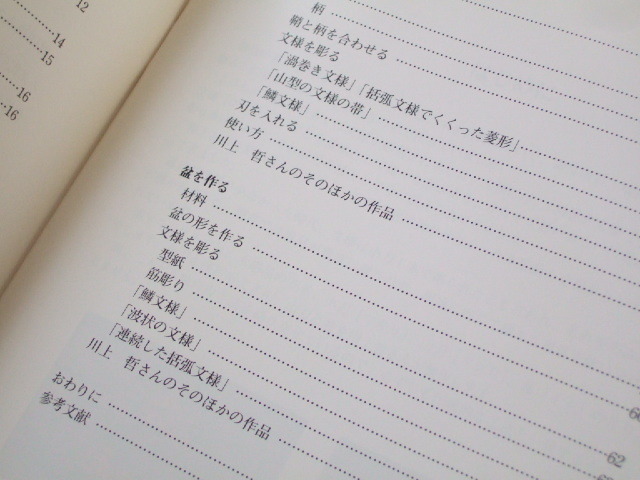 12
14
15
16
16
柄
鞘と柄を合わせる
文様を彫る
「渦巻き文様」「括弧文様でくくった菱形」
「山型の文様の帯」
「鱗文様」
刃を入れる
使い方
川上 哲さんのそのほかの作品
盆を作る
材料
盆の形を作る
文様を彫る
型紙
筋彫り
「鱗文様」
「波状の文様」
「連続した括弧文様」
川上 哲さんのそのほかの作品
おわりに
参考文献
62